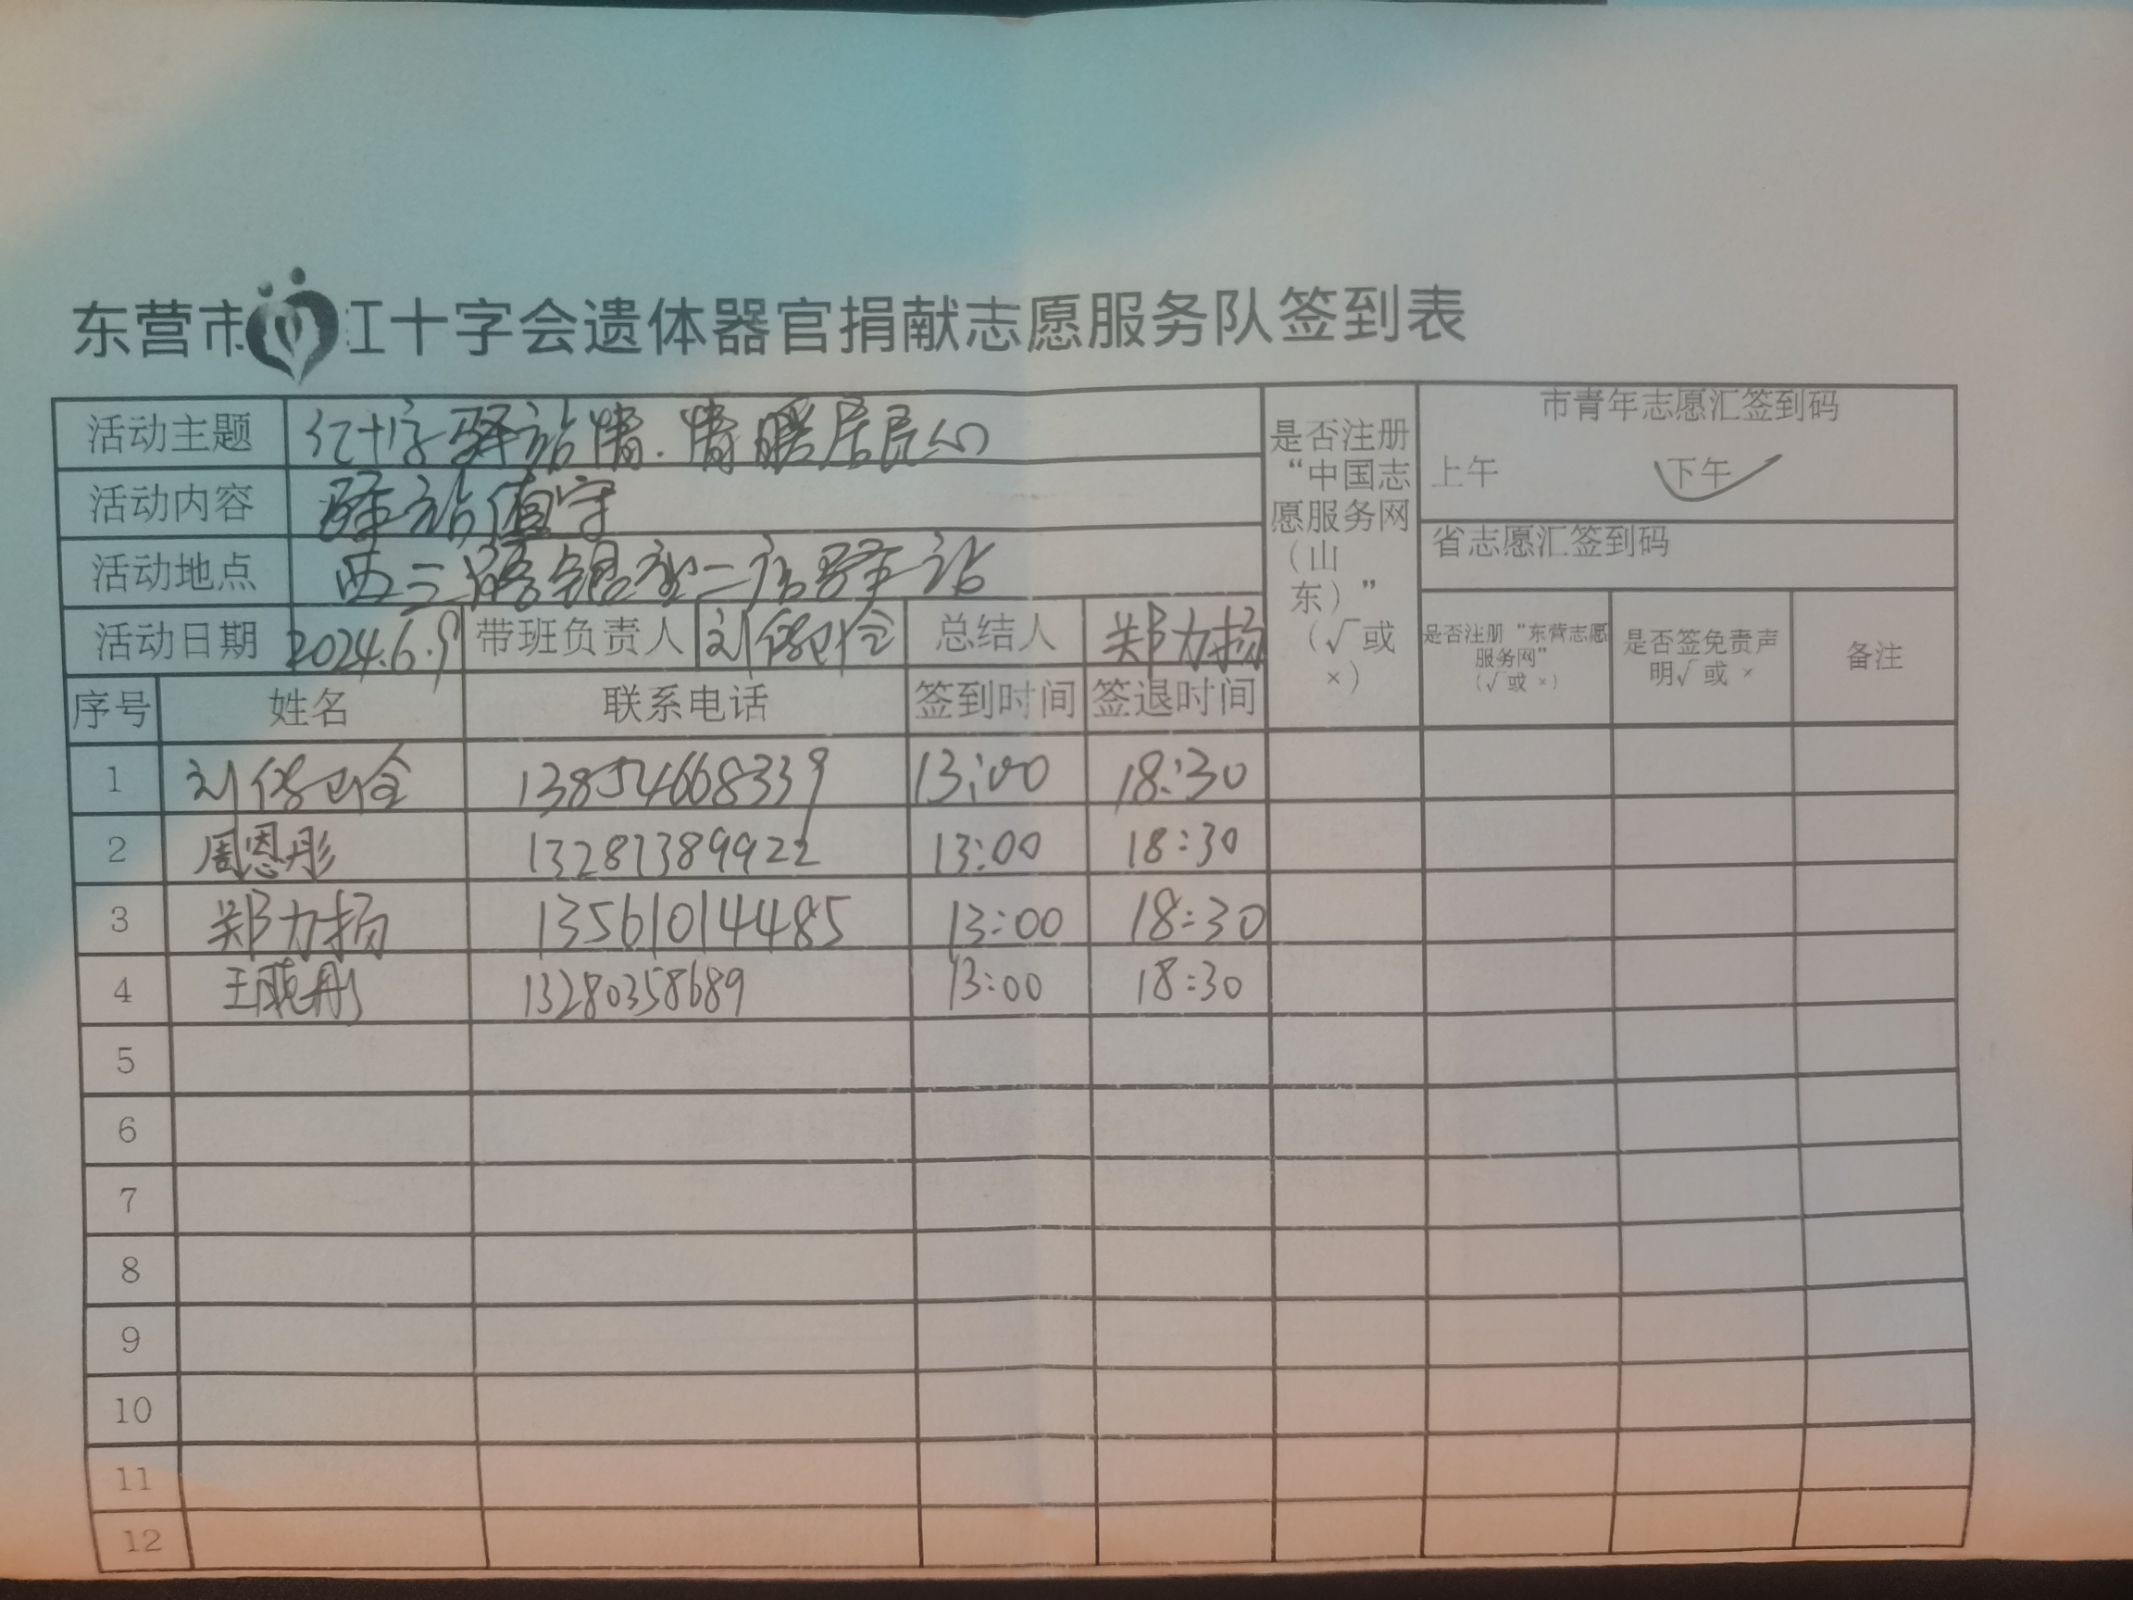 东营市红十字会遗体器官捐献志愿服务队签到表
活动主题 红十字驿站情.情暖居民心
活动内容 驿站值守
活动地点 西三路银座二店驿站
活动日期 2024.6.9 带班负责人 刘 总结人 郑力扬
是否注册
“中国志
愿服务网
（山
东）”
（√或
×）
市青年志愿汇签到码
上午 下午
省志愿汇签到码
是否注册“东营志愿
服务网”
（√或 ×）
是否签免责声
明√ 或 ×
备注
序号 姓名 联系电话 签到时间 签退时间
1 刘 13854668339 13:00 18:30
2 周恩彤 13281389922 13:00 18:30
3 郑力扬 13561014485 13:00 18:30
4 王晓彤 13280358689 13:00 18:30
5
6
7
8
9
10
11
12